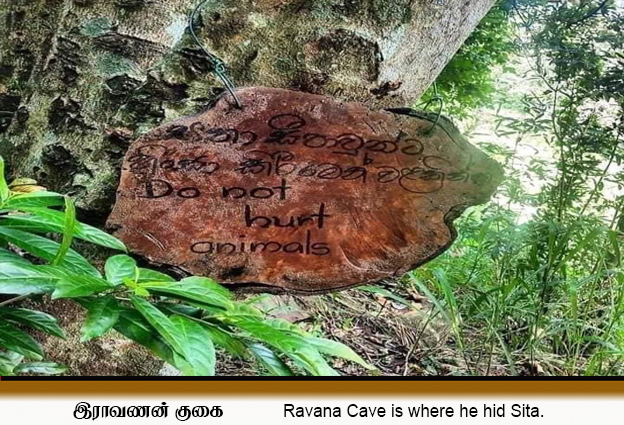 සතා සීපාවුන්ට
හිංසා කිරීමෙන් වළකින්න
Do not
hurt
animals
இராவணன் குகை Ravana Cave is where he hid Sita.